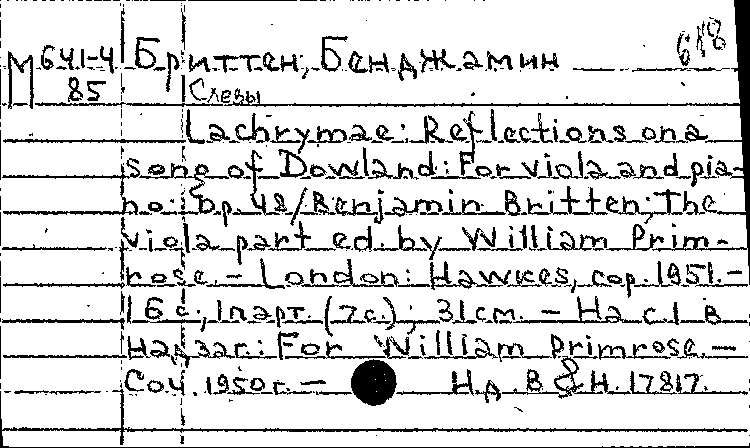 М 641-4 Бриттен, Бенджамин 618
85 Слезы
Lachrymae: Reflections on a
song of Dowland: For viola and pia-
no: Op. 48/Benjamin Britten; The
viola part ed. by William Prim-
rose. – London: Hawkes, cop. 1951. –
16 с., 1 парт. (7 с.); 31 см. – На с. 1 в
надзаг.: For William Primrose. –
Соч. 1950 г. – Н.д. B & H. 17817.